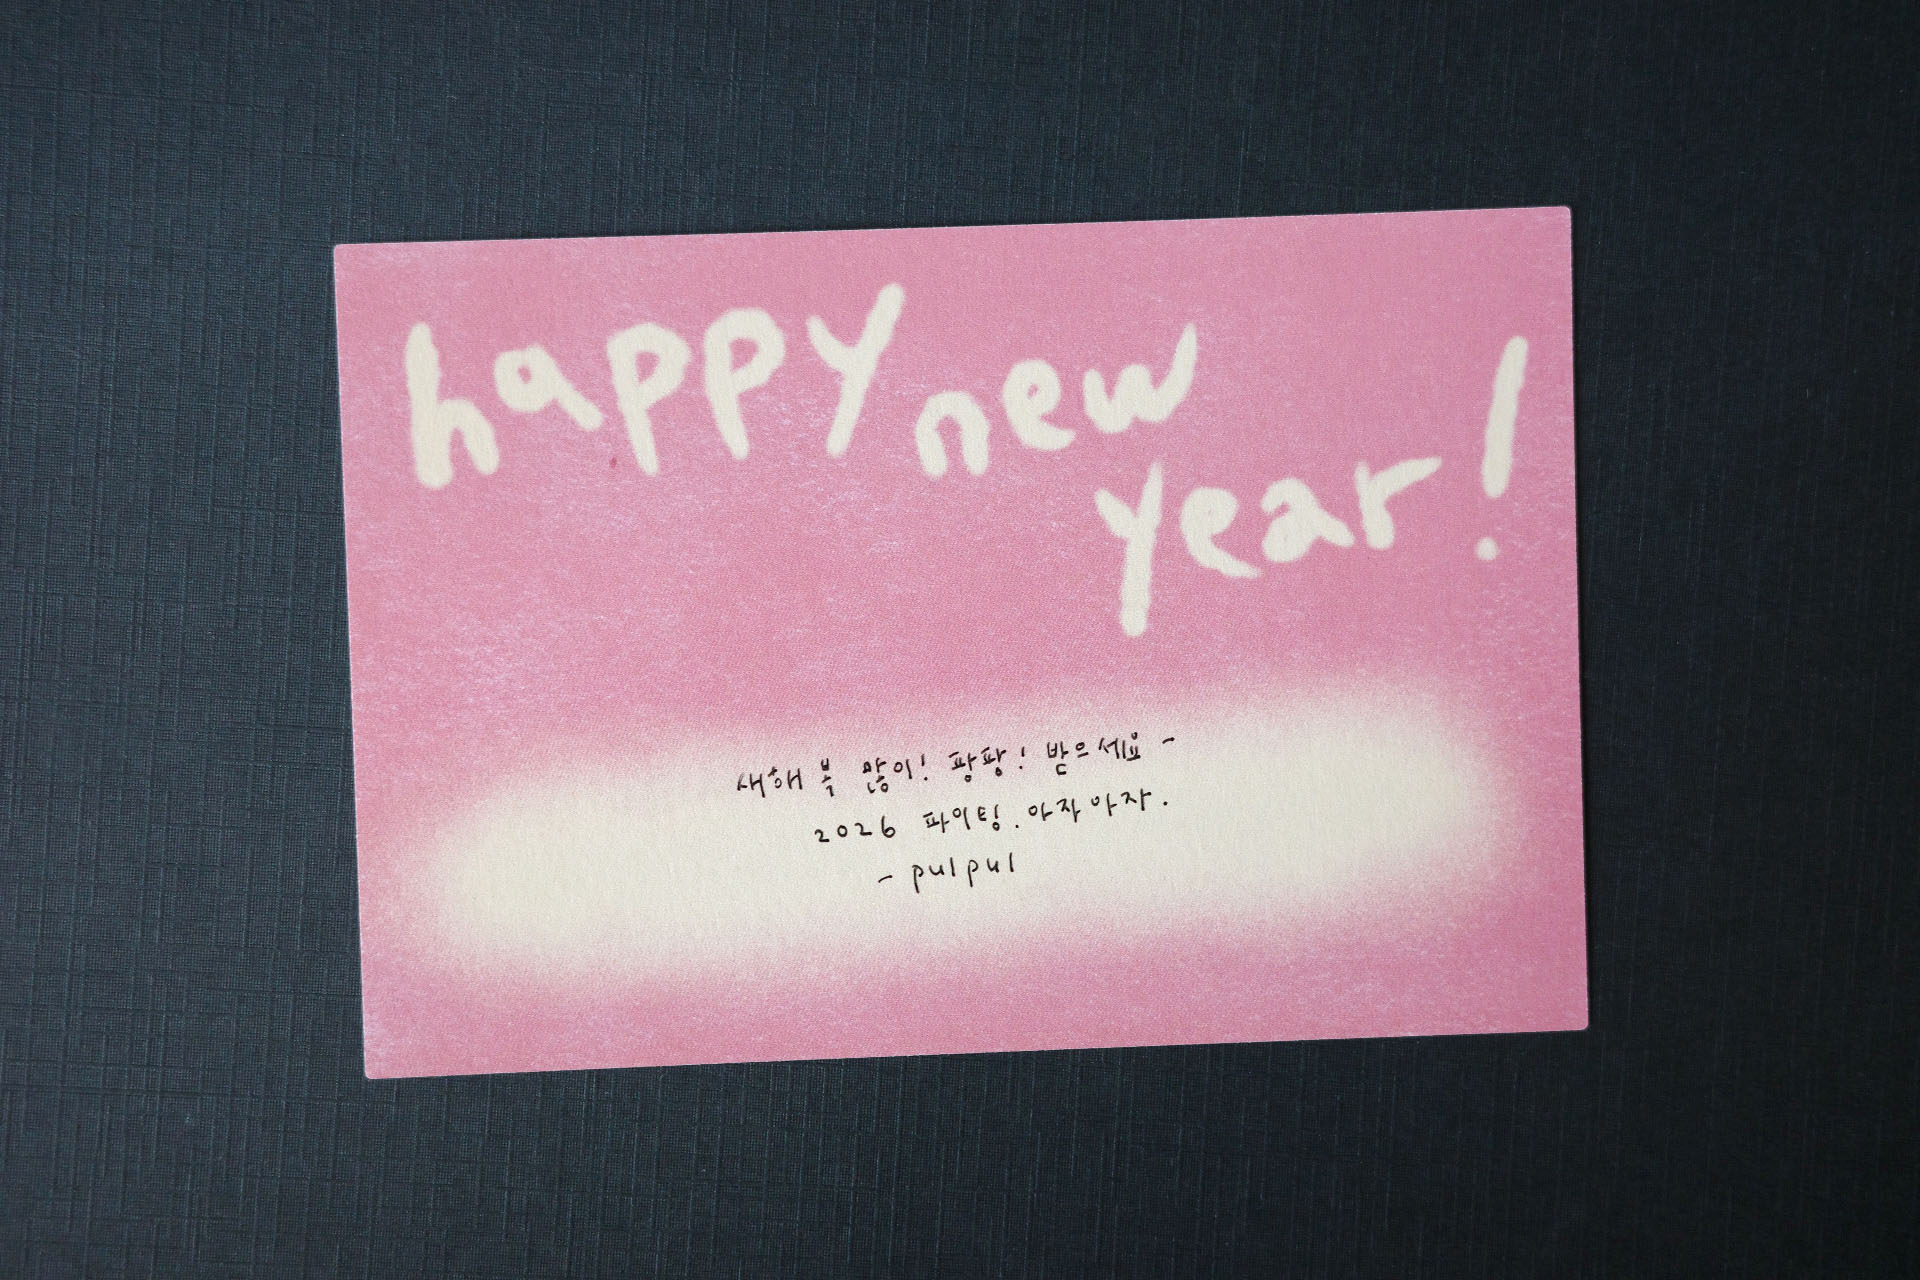 happy new
year!
새해 복 많이! 팡팡! 받으세요 -
2026 파이팅. 아자아자.
- pulpul